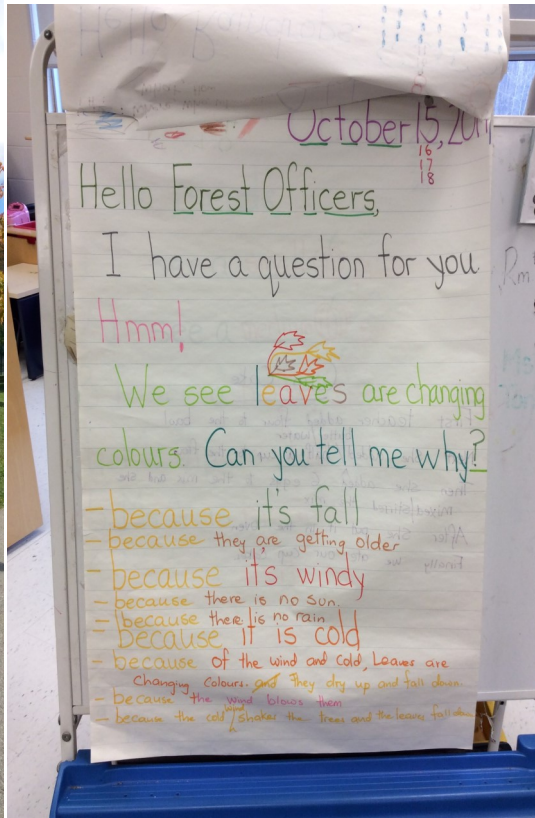 Hello
October 15, 201
16
17
18
Hello Forest Officers,
I have a question for you
Hmm!
We see leaves are changing
colours. Can you tell me why?
- because it's fall
- because they are getting older
- because it's windy
- because there is no sun
- because there is no rain
- because it is cold
- because of the wind and cold, Leaves are
changing colours. and They dry up and fall down.
- because the wind blows them
- because the cold wind shakes the trees and the leaves fall down
Rm